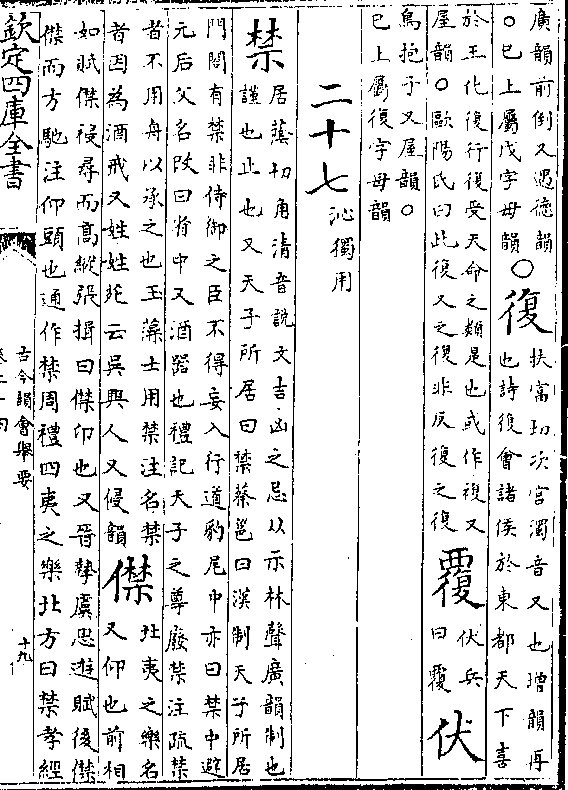 廣韻前倒又遇德韻
○已上屬戊字母韻○復扶富切次宮濁音又也增韻再
也詩復會諸侯於東都天下喜
於王化復行復受天命之類是也或作複又
屋韻○歐陽氏曰此復又之復非反復之復覆伏兵
曰覆伏
鳥抱子又屋韻○
已上屬復字母韻
二十七沁獨用
禁居蔭切角清音說文吉凶之忌从示林聲廣韻制也
謹也止也又天子所居曰禁蔡邕曰漢制天子所居
門閤有禁非侍御之臣不得妄入行道豹尾中亦曰禁中避
元后父名改曰省中又酒器也禮記天子之尊廢禁注疏禁
者不用舟以承之也玉藻士用禁注名禁
者因為酒戒又姓姓苑云吳興人又侵韻僸北夷之樂名
又仰也前相
如賦僸祲尋而高縱張揖曰僸卬也又晉摯虞思遊賦後僸
傑而方馳注仰頭也通作禁周禮四夷之樂北方曰禁孝經
欽定四庫全書
古今韻會舉要
十九